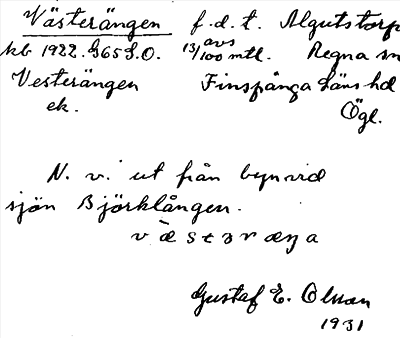 Västerängen f. d. t. Algutstorp
kb 1922. G65 S.O. 13/100 avs mtl. Regna sn
Vesterängen Finspånga läns hd
ek. Ögl.
N. v. ut från byn vid
sjön Björklången.
Gustaf E. Olsson
1931